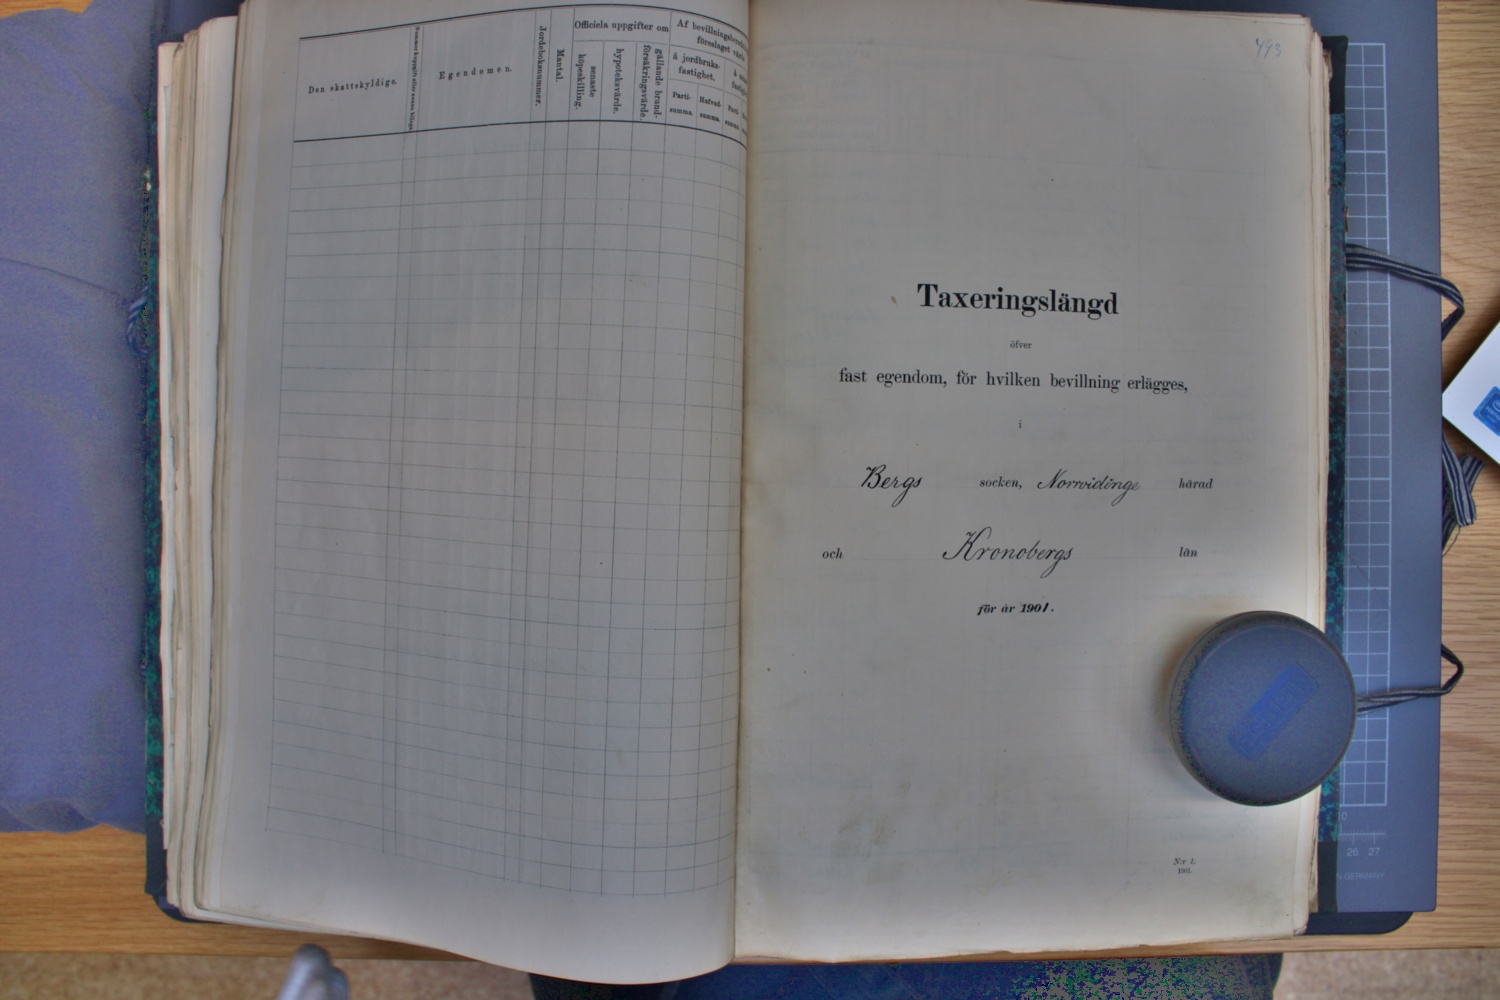 Den skattskyldige.
Egendomen.
Jordeboksnummer.
Mantal.
Officiela uppgifter om
senaste
köpeskilling.
hypoteksvärde.
gällande brand-
försäkringsvärde.
föreslaget
å jordbruks-
fastighet.
Parti-
summa.
Hufvud-
summa.
493
Taxeringslängd
öfver
fast egendom, för hvilken bevillning erlägges,
i
Bergs socken, Norrvidinge härad
och Kronobergs län
för år 1901.
N:r 1.
1901.
26 27
GERMANY